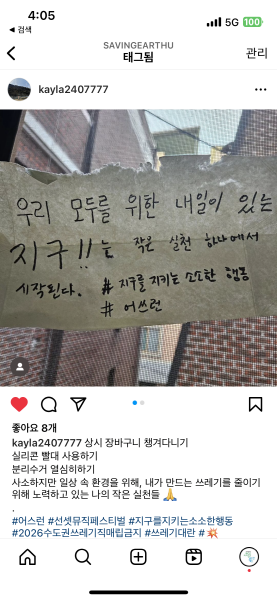 4:05
5G 100
◀ 검색
SAVINGEARTHU
태그됨
관리
kayla2407777
우리 모두를 위한 내일이 있는
지구!!는 작은 실천 하나에서
시작된다. # 지구를 지키는 소소한 행동
# 어쓰런
좋아요 8개
kayla2407777 상시 장바구니 챙겨다니기
실리콘 빨대 사용하기
분리수거 열심히하기
사소하지만 일상 속 환경을 위해, 내가 만드는 쓰레기를 줄이기
위해 노력하고 있는 나의 작은 실천들 🙏
.
#어스런 #선셋뮤직페스티벌 #지구를지키는소소한행동
#2026수도권쓰레기직매립금지 #쓰레기대란 #💥